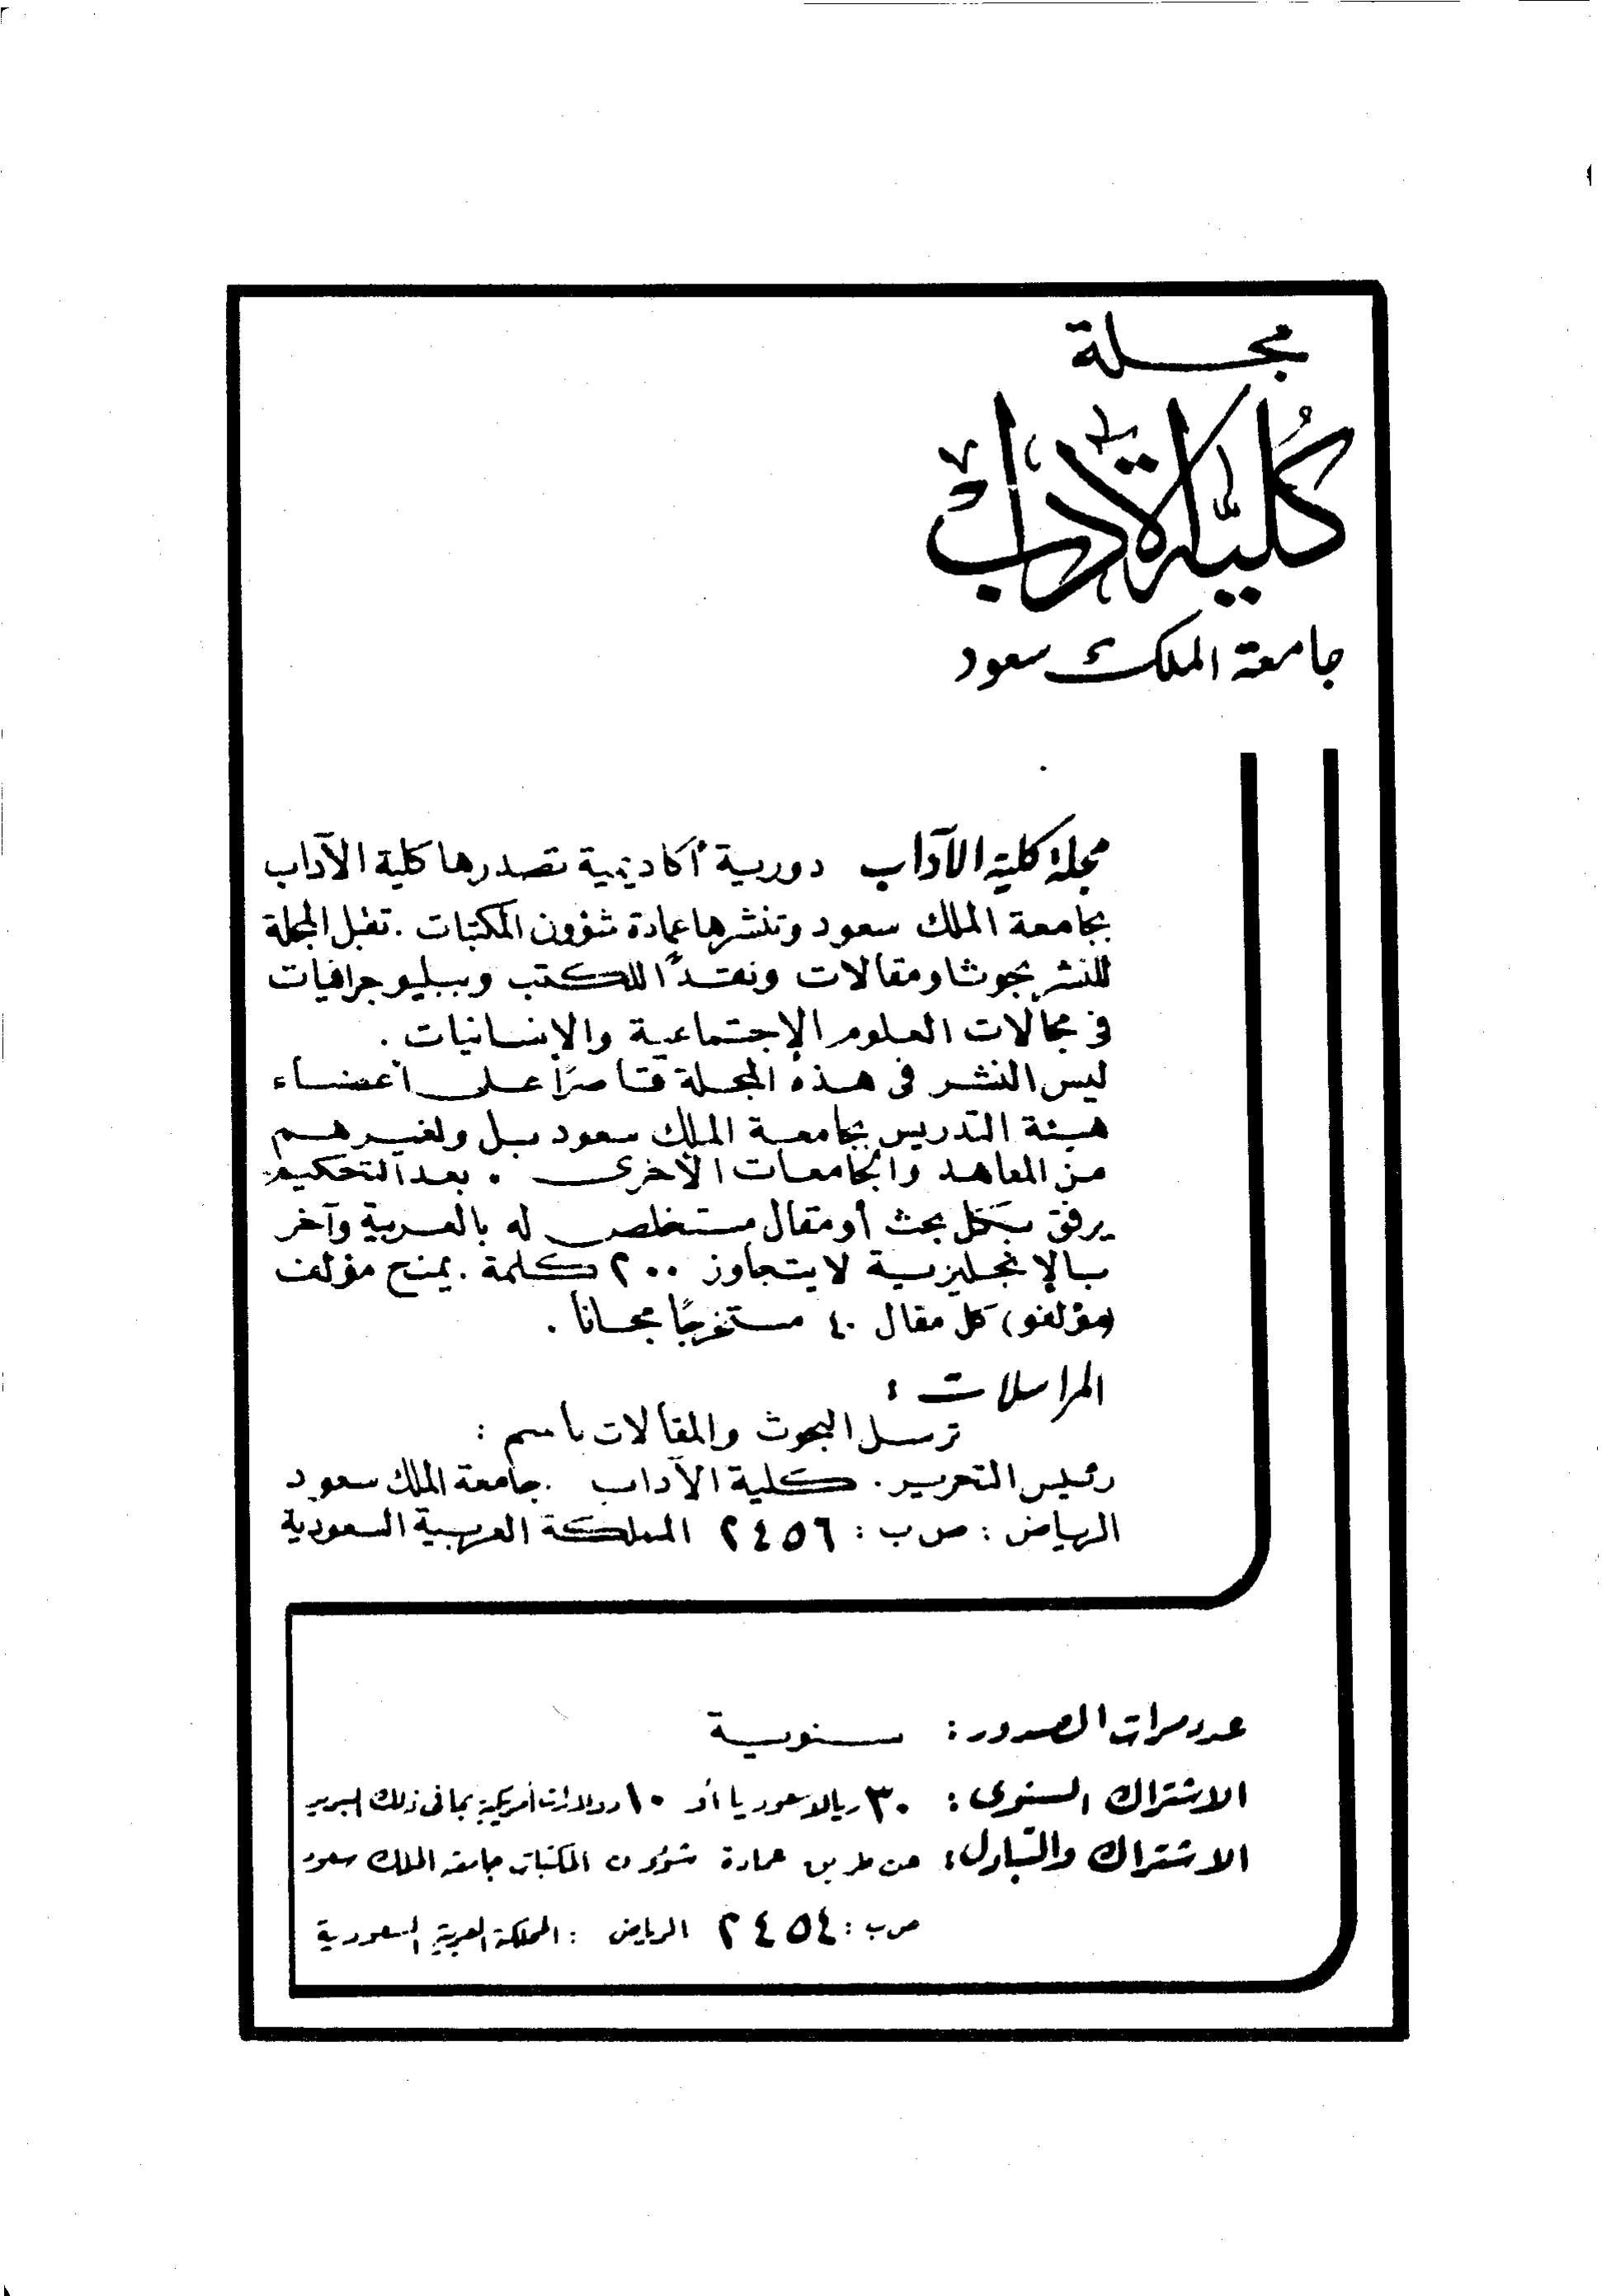 مجلة
كُليَّة الآداب
جامعة الملك سعود
مجلة كلية الآداب دورية أكاديمية تصدرها كلية الآداب
بجامعة الملك سعود وتنشرها عمادة شؤون المكتبات . تقبل المجلة
للنشر بحوثا ومقالات ونقدًا للكتب وببليوجرافيات
فى مجالات العلوم الإجتماعية والإنسانيات .
ليس النشر فى هذه المجلة قاصرًا على أعضاء
هيئة التدريس بجامعة الملك سعود بل ولغيرهم
من المعاهد والجامعات الأخرى . بعد التحكيم
يرفق بكل بحث أو مقال مستخلص له بالعربية وآخر
بالإنجليزية لا يتجاوز ٢٠٠ كلمة . يمنح مؤلف
(مؤلفو) كل مقال ٤٠ مستخرجًا مجانا .
المراسلات :
ترسل البحوث والمقالات باسم :
رئيس التحرير . كلية الآداب . جامعة الملك سعود
الرياض : ص ب : ٢٤٥٦ المملكة العربية السعودية
عدد مرات الصدور : سنوية
الاشتراك السنوى : ٣٠ ريالا سعوديا أو ١٠ دولارات أمريكية بما فى ذلك البريد
الاشتراك والتبادل : عن طريق عمادة شؤون المكتبات جامعة الملك سعود
ص ب : ٢٤٥٤ الرياض : المملكة العربية السعودية